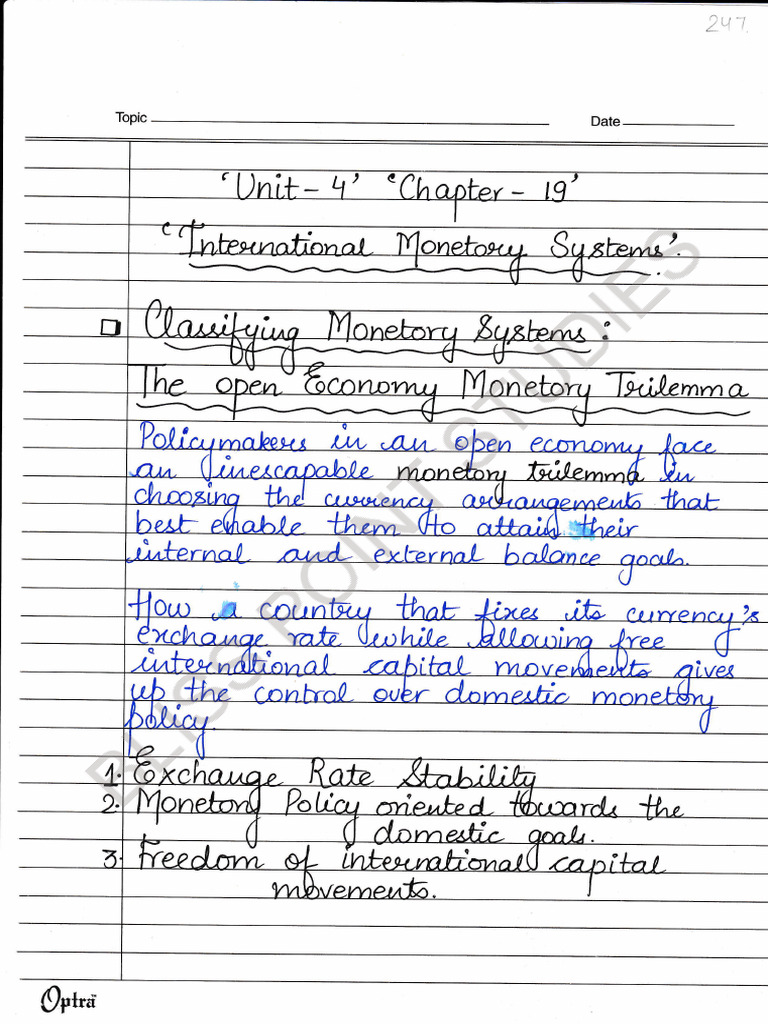 247.
Topic
Date
'Unit - 4' 'Chapter - 19'
'International Monetory Systems'.
Classifying Monetory Systems :
The open Economy Monetory Trilemma
Policymakers in an open economy face
an inescapable monetory trilemma in
choosing the currency arrangements that
best enable them to attain their
internal and external balance goals.
How a country that fixes its currency's
exchange rate while allowing free
international capital movements gives
up the control over domestic monetory
policy.
1. Exchange Rate Stability
2. Monetory Policy oriented towards the
domestic goals.
3. Freedom of international capital
movements.
Optra
BLISS POINT STUDIES